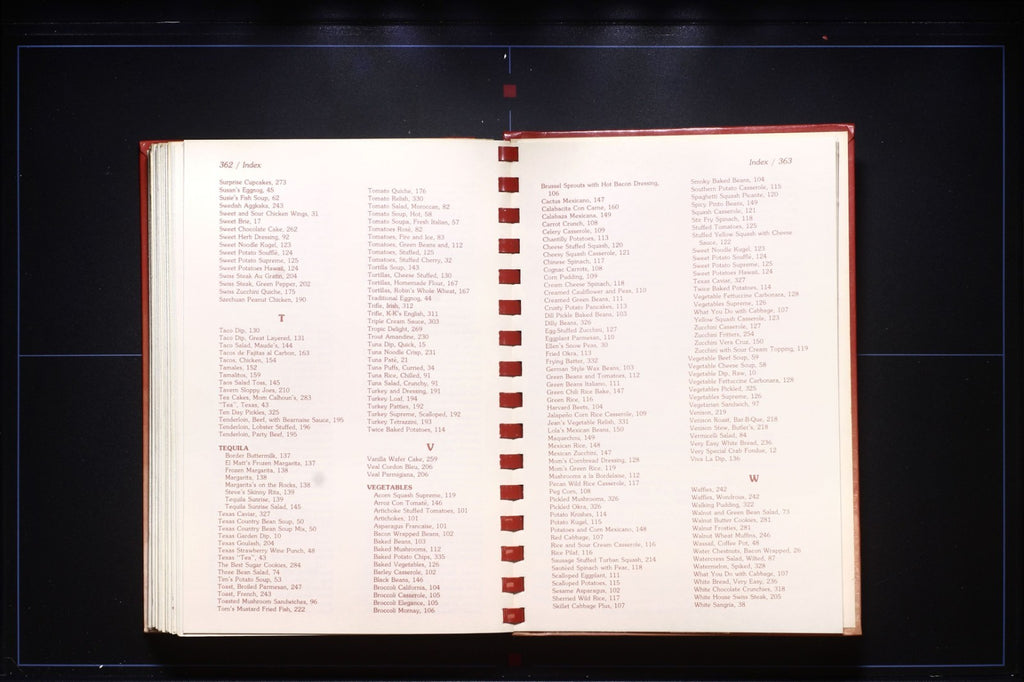 362 / Index
Surprise Cupcakes, 273
Susan's Eggnog, 45
Susie's Fish Soup, 62
Swedish Aggkaka, 243
Sweet and Sour Chicken Wings, 31
Sweet Brie, 17
Sweet Chocolate Cake, 262
Sweet Herb Dressing, 92
Sweet Noodle Kugel, 123
Sweet Potato Soufflé, 124
Sweet Potato Supreme, 125
Sweet Potatoes Hawaii, 124
Swiss Steak Au Gratin, 204
Swiss Steak, Green Pepper, 202
Swiss Zucchini Quiche, 175
Szechuan Peanut Chicken, 190
T
Taco Dip, 130
Taco Dip, Great Layered, 131
Taco Salad, Maude's, 144
Tacos de Fajitas al Carbon, 163
Tacos, Chicken, 154
Tamales, 152
Tamalitos, 159
Taos Salad Toss, 145
Tavern Sloppy Joes, 210
Tea Cakes, Mom Calhoun's, 283
"Tea", Texas, 43
Ten Day Pickles, 325
Tenderloin, Beef, with Bearnaise Sauce, 195
Tenderloin, Lobster Stuffed, 196
Tenderloin, Party Beef, 195
TEQUILA
Border Buttermilk, 137
El Matt's Frozen Margarita, 137
Frozen Margarita, 138
Margarita, 138
Margarita's on the Rocks, 138
Steve's Skinny Rita, 139
Tequila Sunrise, 139
Tequila Sunrise Salad, 145
Texas Caviar, 327
Texas Country Bean Soup, 50
Texas Country Bean Soup Mix, 50
Texas Garden Dip, 10
Texas Goulash, 204
Texas Strawberry Wine Punch, 48
Texas "Tea", 43
The Best Sugar Cookies, 284
Three Bean Salad, 74
Tim's Potato Soup, 53
Toast, Broiled Parmesan, 247
Toast, French, 243
Toasted Mushroom Sandwiches, 96
Tom's Mustard Fried Fish, 222
Tomato Quiche, 176
Tomato Relish, 330
Tomato Salad, Moroccan, 82
Tomato Soup, Hot, 58
Tomato Soupa, Fresh Italian, 57
Tomatoes Rosé, 82
Tomatoes, Fire and Ice, 83
Tomatoes, Green Beans and, 112
Tomatoes, Stuffed, 125
Tomatoes, Stuffed Cherry, 32
Tortilla Soup, 143
Tortillas, Cheese Stuffed, 130
Tortillas, Homemade Flour, 167
Tortillas, Robin's Whole Wheat, 167
Traditional Eggnog, 44
Trifle, Irish, 312
Trifle, K-K's English, 311
Triple Cream Sauce, 303
Tropic Delight, 269
Trout Amandine, 230
Tuna Dip, Quick, 15
Tuna Noodle Crisp, 231
Tuna Paté, 21
Tuna Puffs, Curried, 34
Tuna Rice, Chilled, 91
Tuna Salad, Crunchy, 91
Turkey and Dressing, 191
Turkey Loaf, 194
Turkey Patties, 192
Turkey Supreme, Scalloped, 192
Turkey Tetrazzini, 193
Twice Baked Potatoes, 114
V
Vanilla Wafer Cake, 259
Veal Cordon Bleu, 206
Veal Parmigiana, 206
VEGETABLES
Acorn Squash Supreme, 119
Arroz Con Tomate, 146
Artichoke Stuffed Tomatoes, 101
Artichokes, 101
Asparagus Francaise, 101
Bacon Wrapped Beans, 102
Baked Beans, 103
Baked Mushrooms, 112
Baked Potato Chips, 335
Baked Vegetables, 126
Barley Casserole, 102
Black Beans, 146
Broccoli California, 104
Broccoli Casserole, 105
Broccoli Elegance, 105
Broccoli Mornay, 106
Index / 363
Brussel Sprouts with Hot Bacon Dressing,
106
Cactus Mexicano, 147
Calabacita Con Carne, 160
Calabaza Mexicana, 149
Carrot Crunch, 108
Celery Casserole, 109
Chantilly Potatoes, 113
Cheese Stuffed Squash, 120
Cheesy Squash Casserole, 121
Chinese Spinach, 117
Cognac Carrots, 108
Corn Pudding, 109
Cream Cheese Spinach, 118
Creamed Cauliflower and Peas, 110
Creamed Green Beans, 111
Crusty Potato Pancakes, 113
Dill Pickle Baked Beans, 103
Dilly Beans, 326
Egg-Stuffed Zucchini, 127
Eggplant Parmesan, 110
Ellen's Snow Peas, 30
Fried Okra, 113
Frying Batter, 332
German Style Wax Beans, 103
Green Beans and Tomatoes, 112
Green Beans Italiano, 111
Green Chili Rice Bake, 147
Green Rice, 116
Harvard Beets, 104
Jalapeño Corn Rice Casserole, 109
Jean's Vegetable Relish, 331
Lola's Mexican Beans, 150
Maquechini, 149
Mexican Rice, 148
Mexican Zucchini, 147
Mom's Cornbread Dressing, 128
Mom's Green Rice, 119
Mushrooms a la Bordelaise, 112
Pecan Wild Rice Casserole, 117
Peg Corn, 108
Pickled Mushrooms, 326
Pickled Okra, 326
Potato Knishes, 114
Potato Kugel, 115
Potatoes and Corn Mexicano, 148
Red Cabbage, 107
Rice and Sour Cream Casserole, 116
Rice Pilaf, 116
Sausage Stuffed Turban Squash, 214
Sautéed Spinach with Pear, 118
Scalloped Eggplant, 111
Scalloped Potatoes, 115
Sesame Asparagus, 102
Sherried Wild Rice, 117
Skillet Cabbage Plus, 107
Smoky Baked Beans, 104
Southern Potato Casserole, 115
Spaghetti Squash Picante, 120
Spicy Pinto Beans, 149
Squash Casserole, 121
Stir Fry Spinach, 118
Stuffed Tomatoes, 125
Stuffed Yellow Squash with Cheese
Sauce, 122
Sweet Noodle Kugel, 123
Sweet Potato Soufflé, 124
Sweet Potato Supreme, 125
Sweet Potatoes Hawaii, 124
Texas Caviar, 327
Twice Baked Potatoes, 114
Vegetable Fettuccine Carbonara, 128
Vegetables Supreme, 126
What You Do with Cabbage, 107
Yellow Squash Casserole, 123
Zucchini Casserole, 127
Zucchini Fritters, 254
Zucchini Vera Cruz, 150
Zucchini with Sour Cream Topping, 119
Vegetable Beef Soup, 59
Vegetable Cheese Soup, 58
Vegetable Dip, Raw, 10
Vegetable Fettuccine Carbonara, 128
Vegetables Pickled, 325
Vegetables Supreme, 126
Vegetarian Sandwich, 97
Venison, 219
Venison Roast, Bar-B-Que, 218
Venison Stew, Butler's, 218
Vermicelli Salad, 84
Very Easy White Bread, 236
Very Special Crab Fondue, 12
Viva La Dip, 136
W
Waffles, 242
Waffles, Wondrous, 242
Walking Pudding, 322
Walnut and Green Bean Salad, 73
Walnut Butter Cookies, 281
Walnut Frosties, 281
Walnut Wheat Muffins, 246
Wassail, Coffee Pot, 48
Water Chestnuts, Bacon Wrapped, 26
Watercress Salad, Wilted, 87
Watermelon, Spiked, 328
What You Do with Cabbage, 107
White Bread, Very Easy, 236
White Chocolate Crunchies, 318
White House Swiss Steak, 205
White Sangria, 38